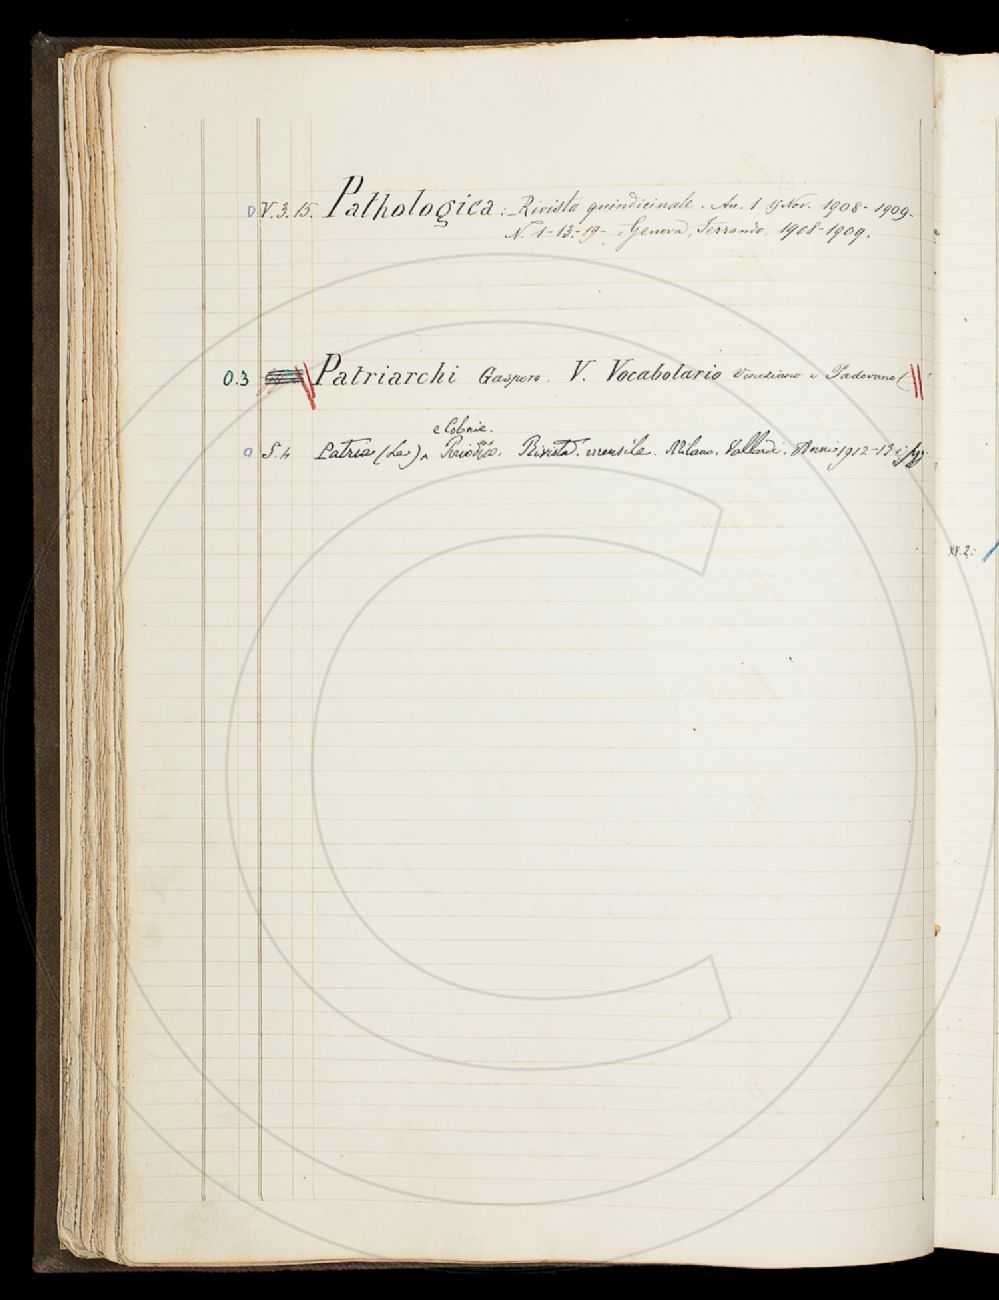 V. 3. 15. Pathologica: Rivista quindicinale. An. 1 Nov. 1908-1909.
N. 1-13-19- Genova, 1908-1909.
0.3 Patriarchi Gasparo. V. Vocabolario Veneziano e Padovano
e Colonie.
0 S. 4 Patria (La) Rivista mensile. Milano, Vallardi. Anni 1912-13
XI.2: